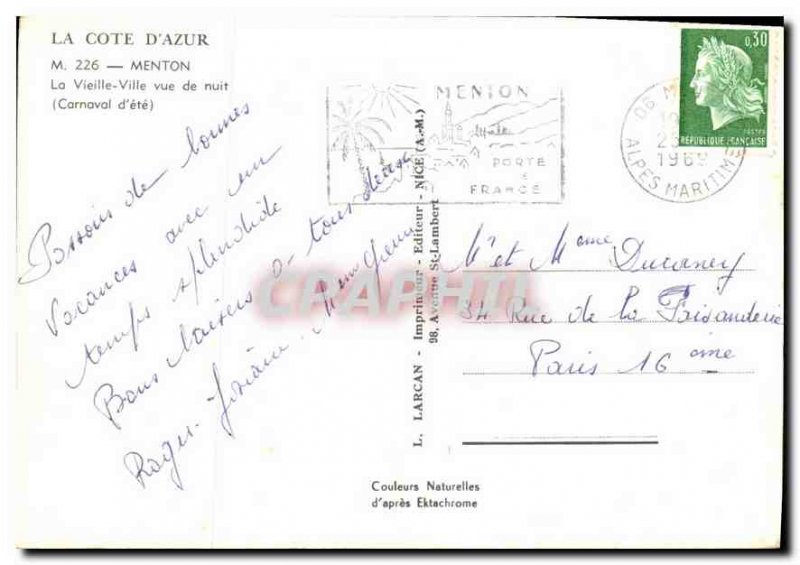 LA COTE D'AZUR
M. 226 — MENTON
La Vieille-Ville vue de nuit
(Carnaval d'été)
Passons de bonnes
vacances avec un
temps splendide
Bons baisers à tous deux
Roger. Josiane.
MENTON
PORTE
FRANCE
06 M
1969
ALPES MARITIMES
0,30
POSTES
REPUBLIQUE FRANÇAISE
L. LARCAN - Imprimeur - Editeur - NICE (A.-M.)
98, Avenue St-Lambert
Mr et Mme Ducaney
34 Rue de la Faisanderie
Paris 16 ème
Couleurs Naturelles
d'après Ektachrome
CPAPHIL